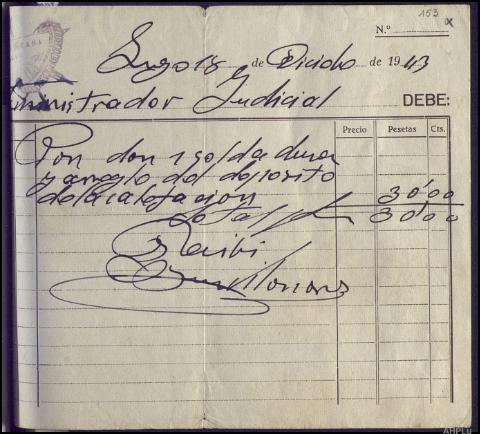 153
N.º
Lugo 18 de Dicicbo de 1943
ministrador Judicial DEBE:
Precio Pesetas Cts.
Por don 1 soldadura
y arreglo del deposito 30'00
de la calefación
total 30'00
Recibi
AHPLu